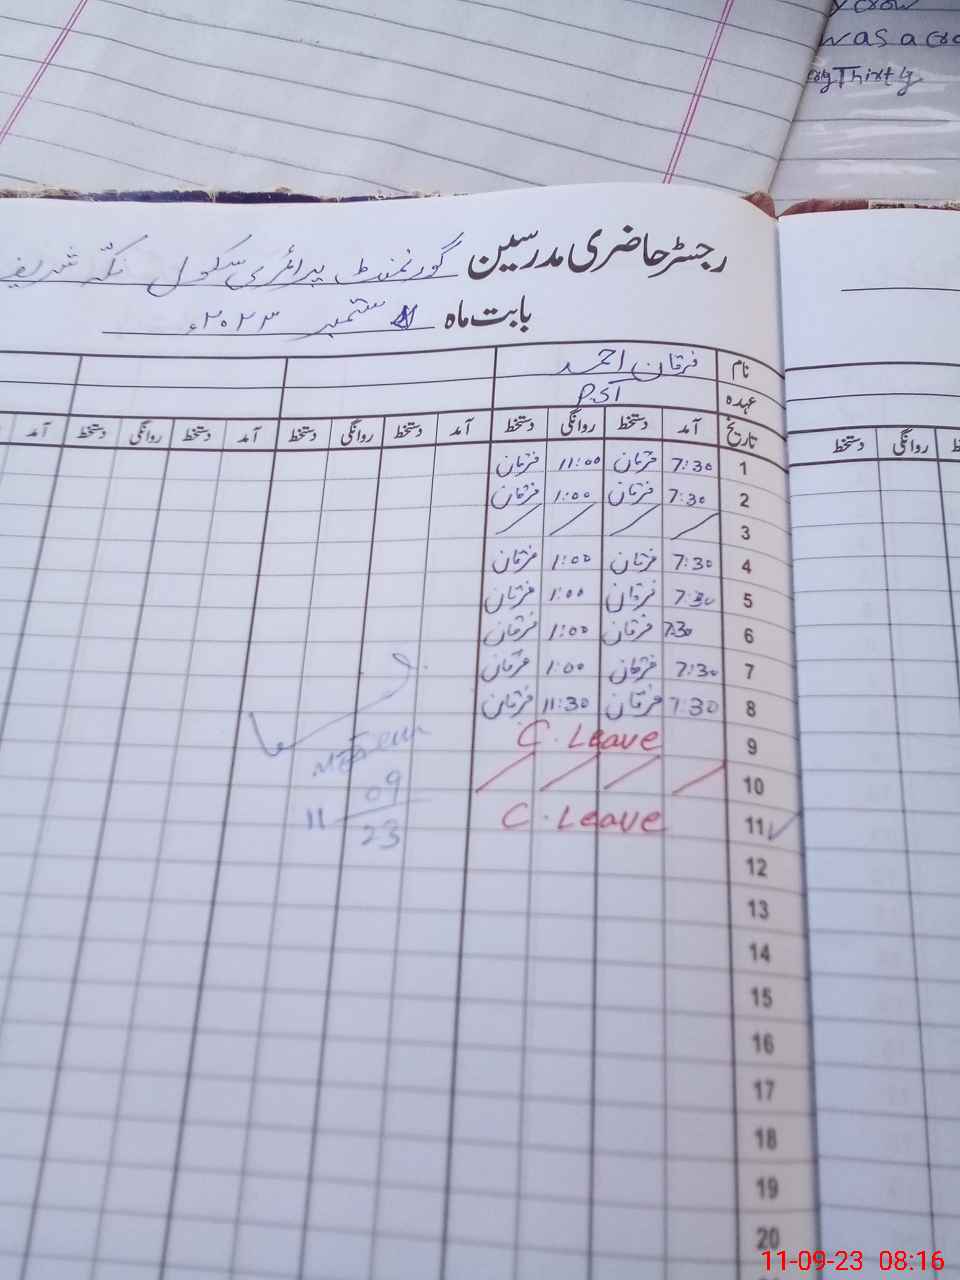 y crow
was a cro
Thirsty
رجسٹر حاضری مدرسین گورنمنٹ پرائمری سکول نکہ شریف
بابت ماہ ستمبر ۲۰۲۳ء
نام فرقان احمد
عہدہ
تاریخ آمد دستخط روانگی دستخط آمد دستخط روانگی دستخط آمد دستخط روانگی دستخط آمد
روانگی دستخط
1 7:30 فرقان 11:00 فرقان
2 7:30 فرقان 1:00 فرقان
3 / / / /
4 7:30 فرقان 1:00 فرقان
5 7:30 فرقان 1:00 فرقان
6 7:30 فرقان 1:00 فرقان
7 7:30 فرقان 1:00 فرقان
8 7:30 فرقان 11:30 فرقان
9 C. Leave
10 / / / /
11 C. Leave
11 09
23
12
13
14
15
16
17
18
19
20
11-09-23 08:16